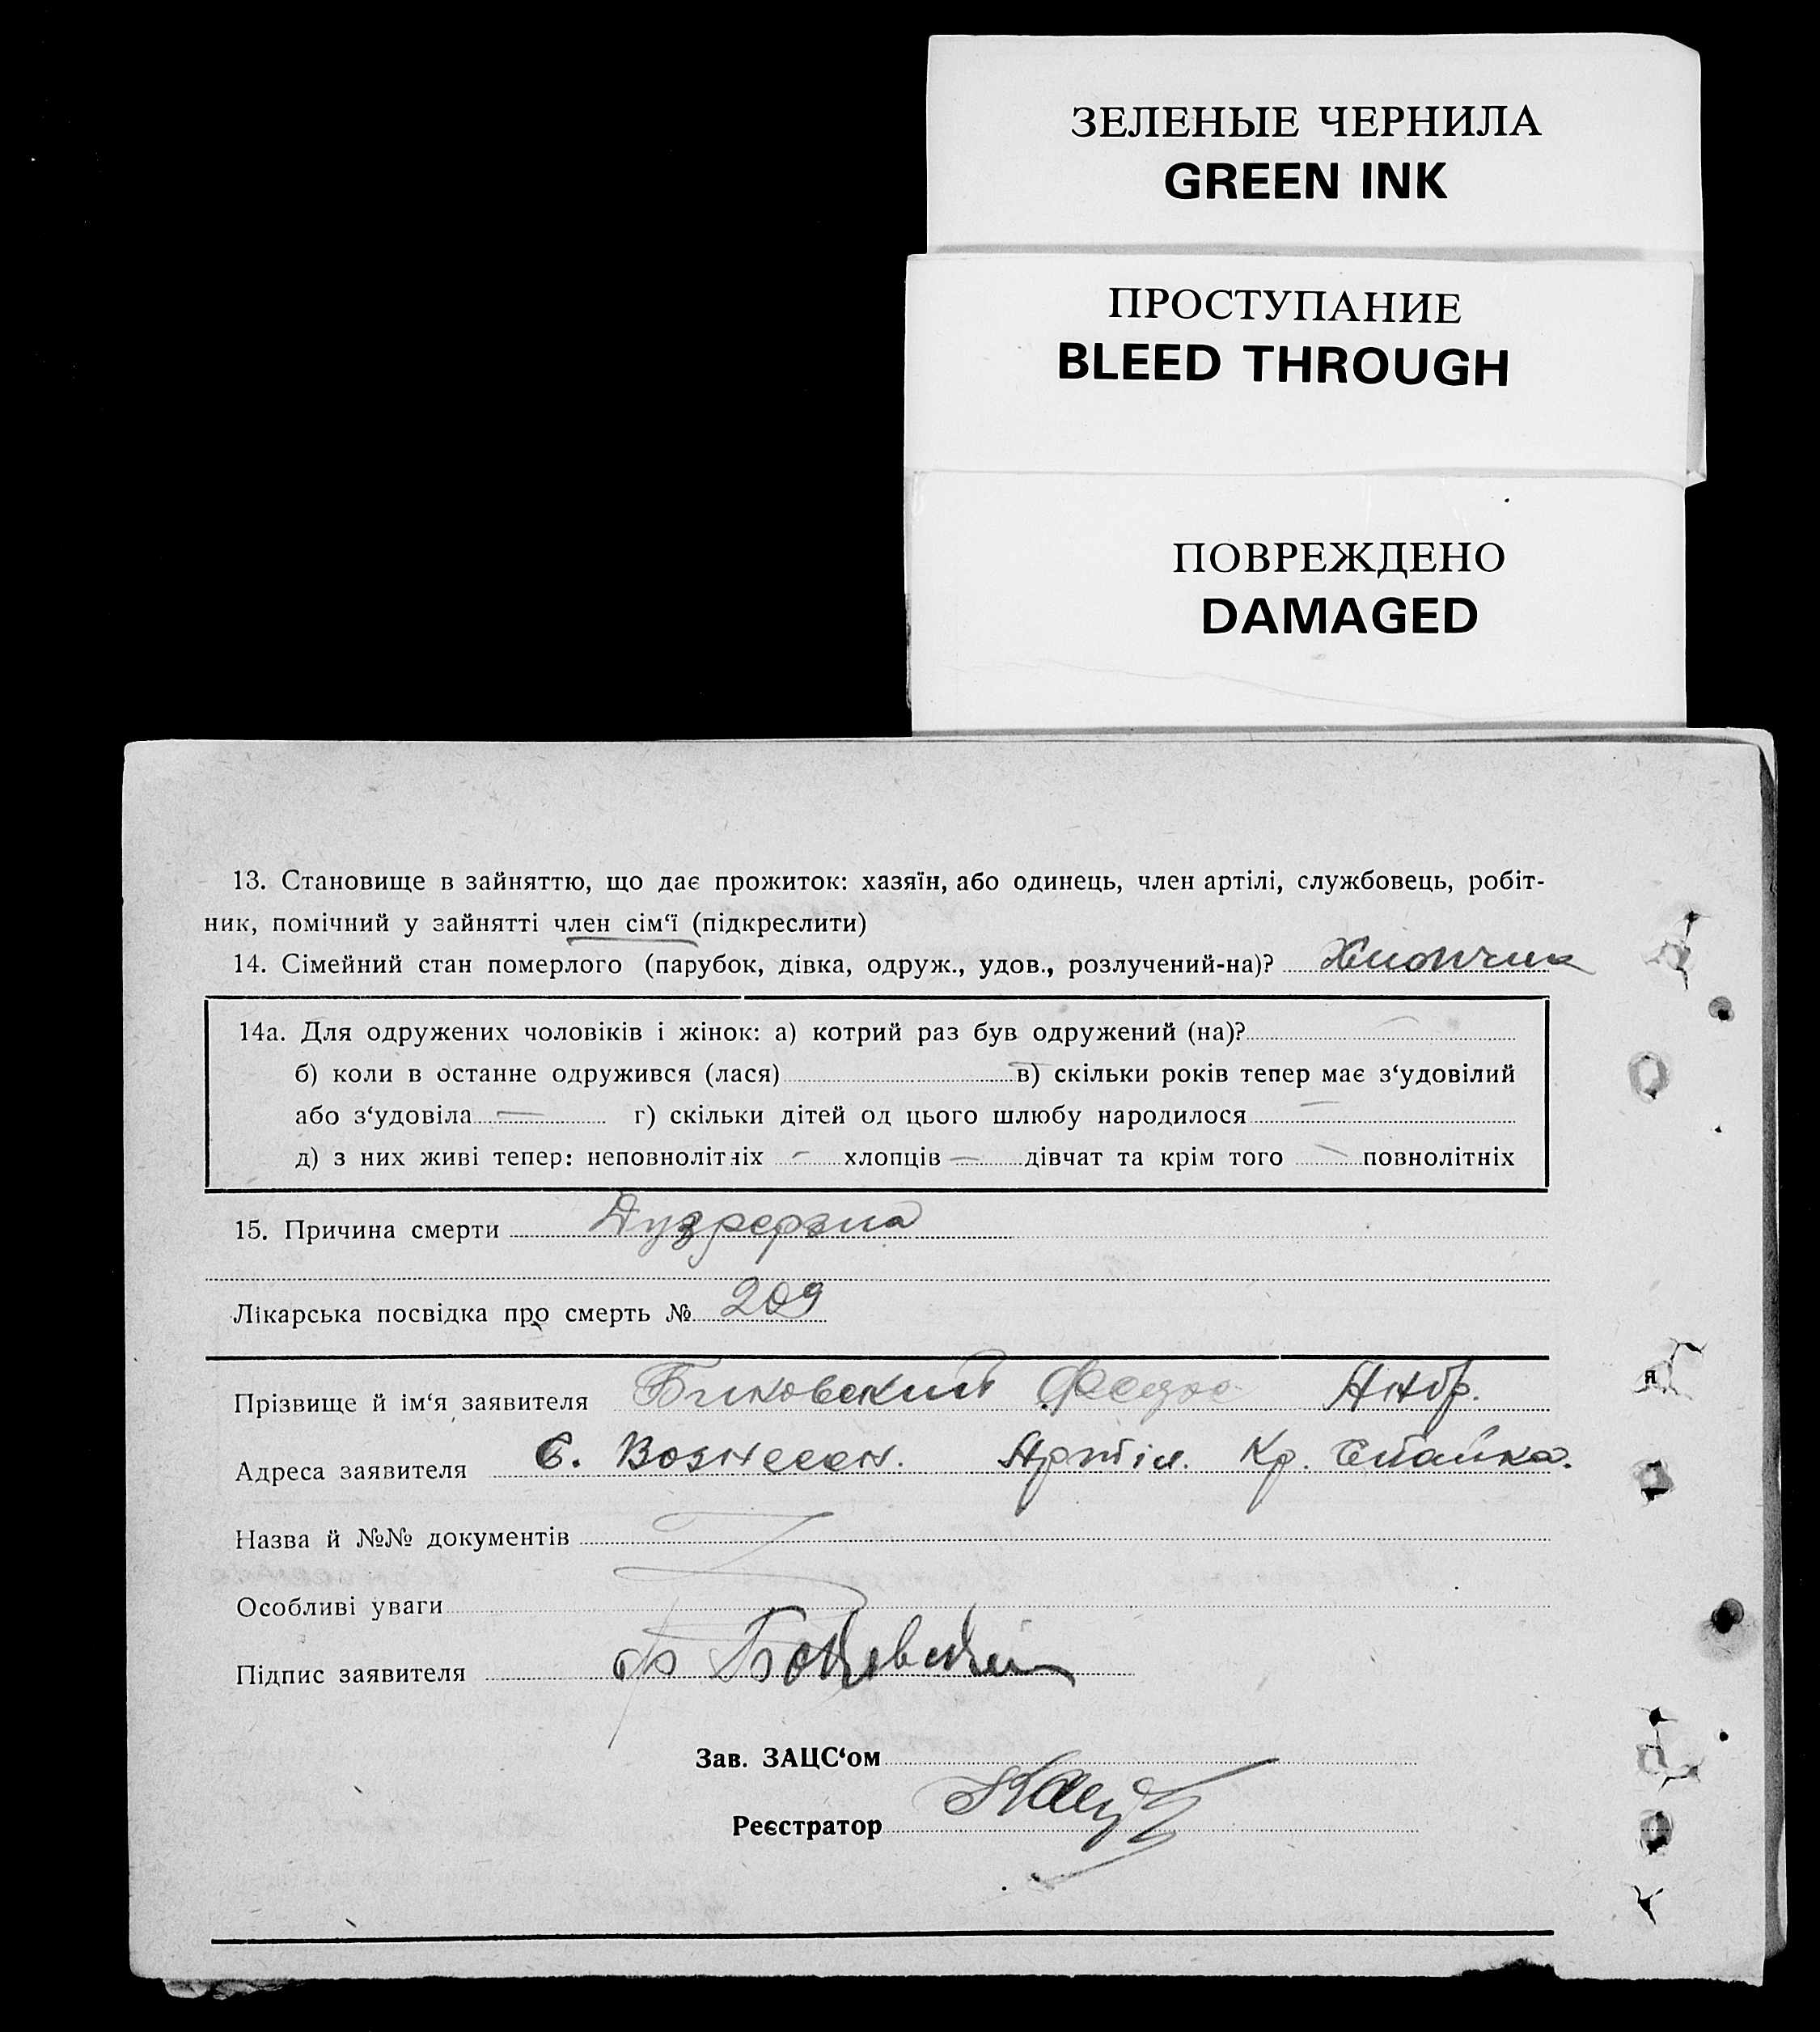 ЗЕЛЕНЫЕ ЧЕРНИЛА
GREEN INK
ПРОСТУПАНИЕ
BLEED THROUGH
ПОВРЕЖДЕНО
DAMAGED
13. Становище в зайняттю, що дає прожиток: хазяїн, або одинець, член артілі, службовець, робіт-
ник, помічний у зайнятті член сім‘ї (підкреслити)
14. Сімейний стан померлого (парубок, дівка, одруж., удов., розлучений-на)? Хлопчик
14а. Для одружених чоловіків і жінок: а) котрий раз був одружений (на)? —
б) коли в останне одружився (лася) в) скільки років тепер має з‘удовілий
або з‘удовіла — г) скільки дітей од цього шлюбу народилося —
д) з них живі тепер: неповнолітніх — хлопців — дівчат та крім того — повнолітніх
15. Причина смерти
Лікарська посвідка про смерть № 209
Прізвище й ім‘я заявителя Биковский Федро Андр.
Адреса заявителя С. Вознесен. Артіл. Кр. Смайка.
Назва й №№ документів
Особливі уваги
Підпис заявителя Ф
Зав. ЗАЦС‘ом
Реєстратор